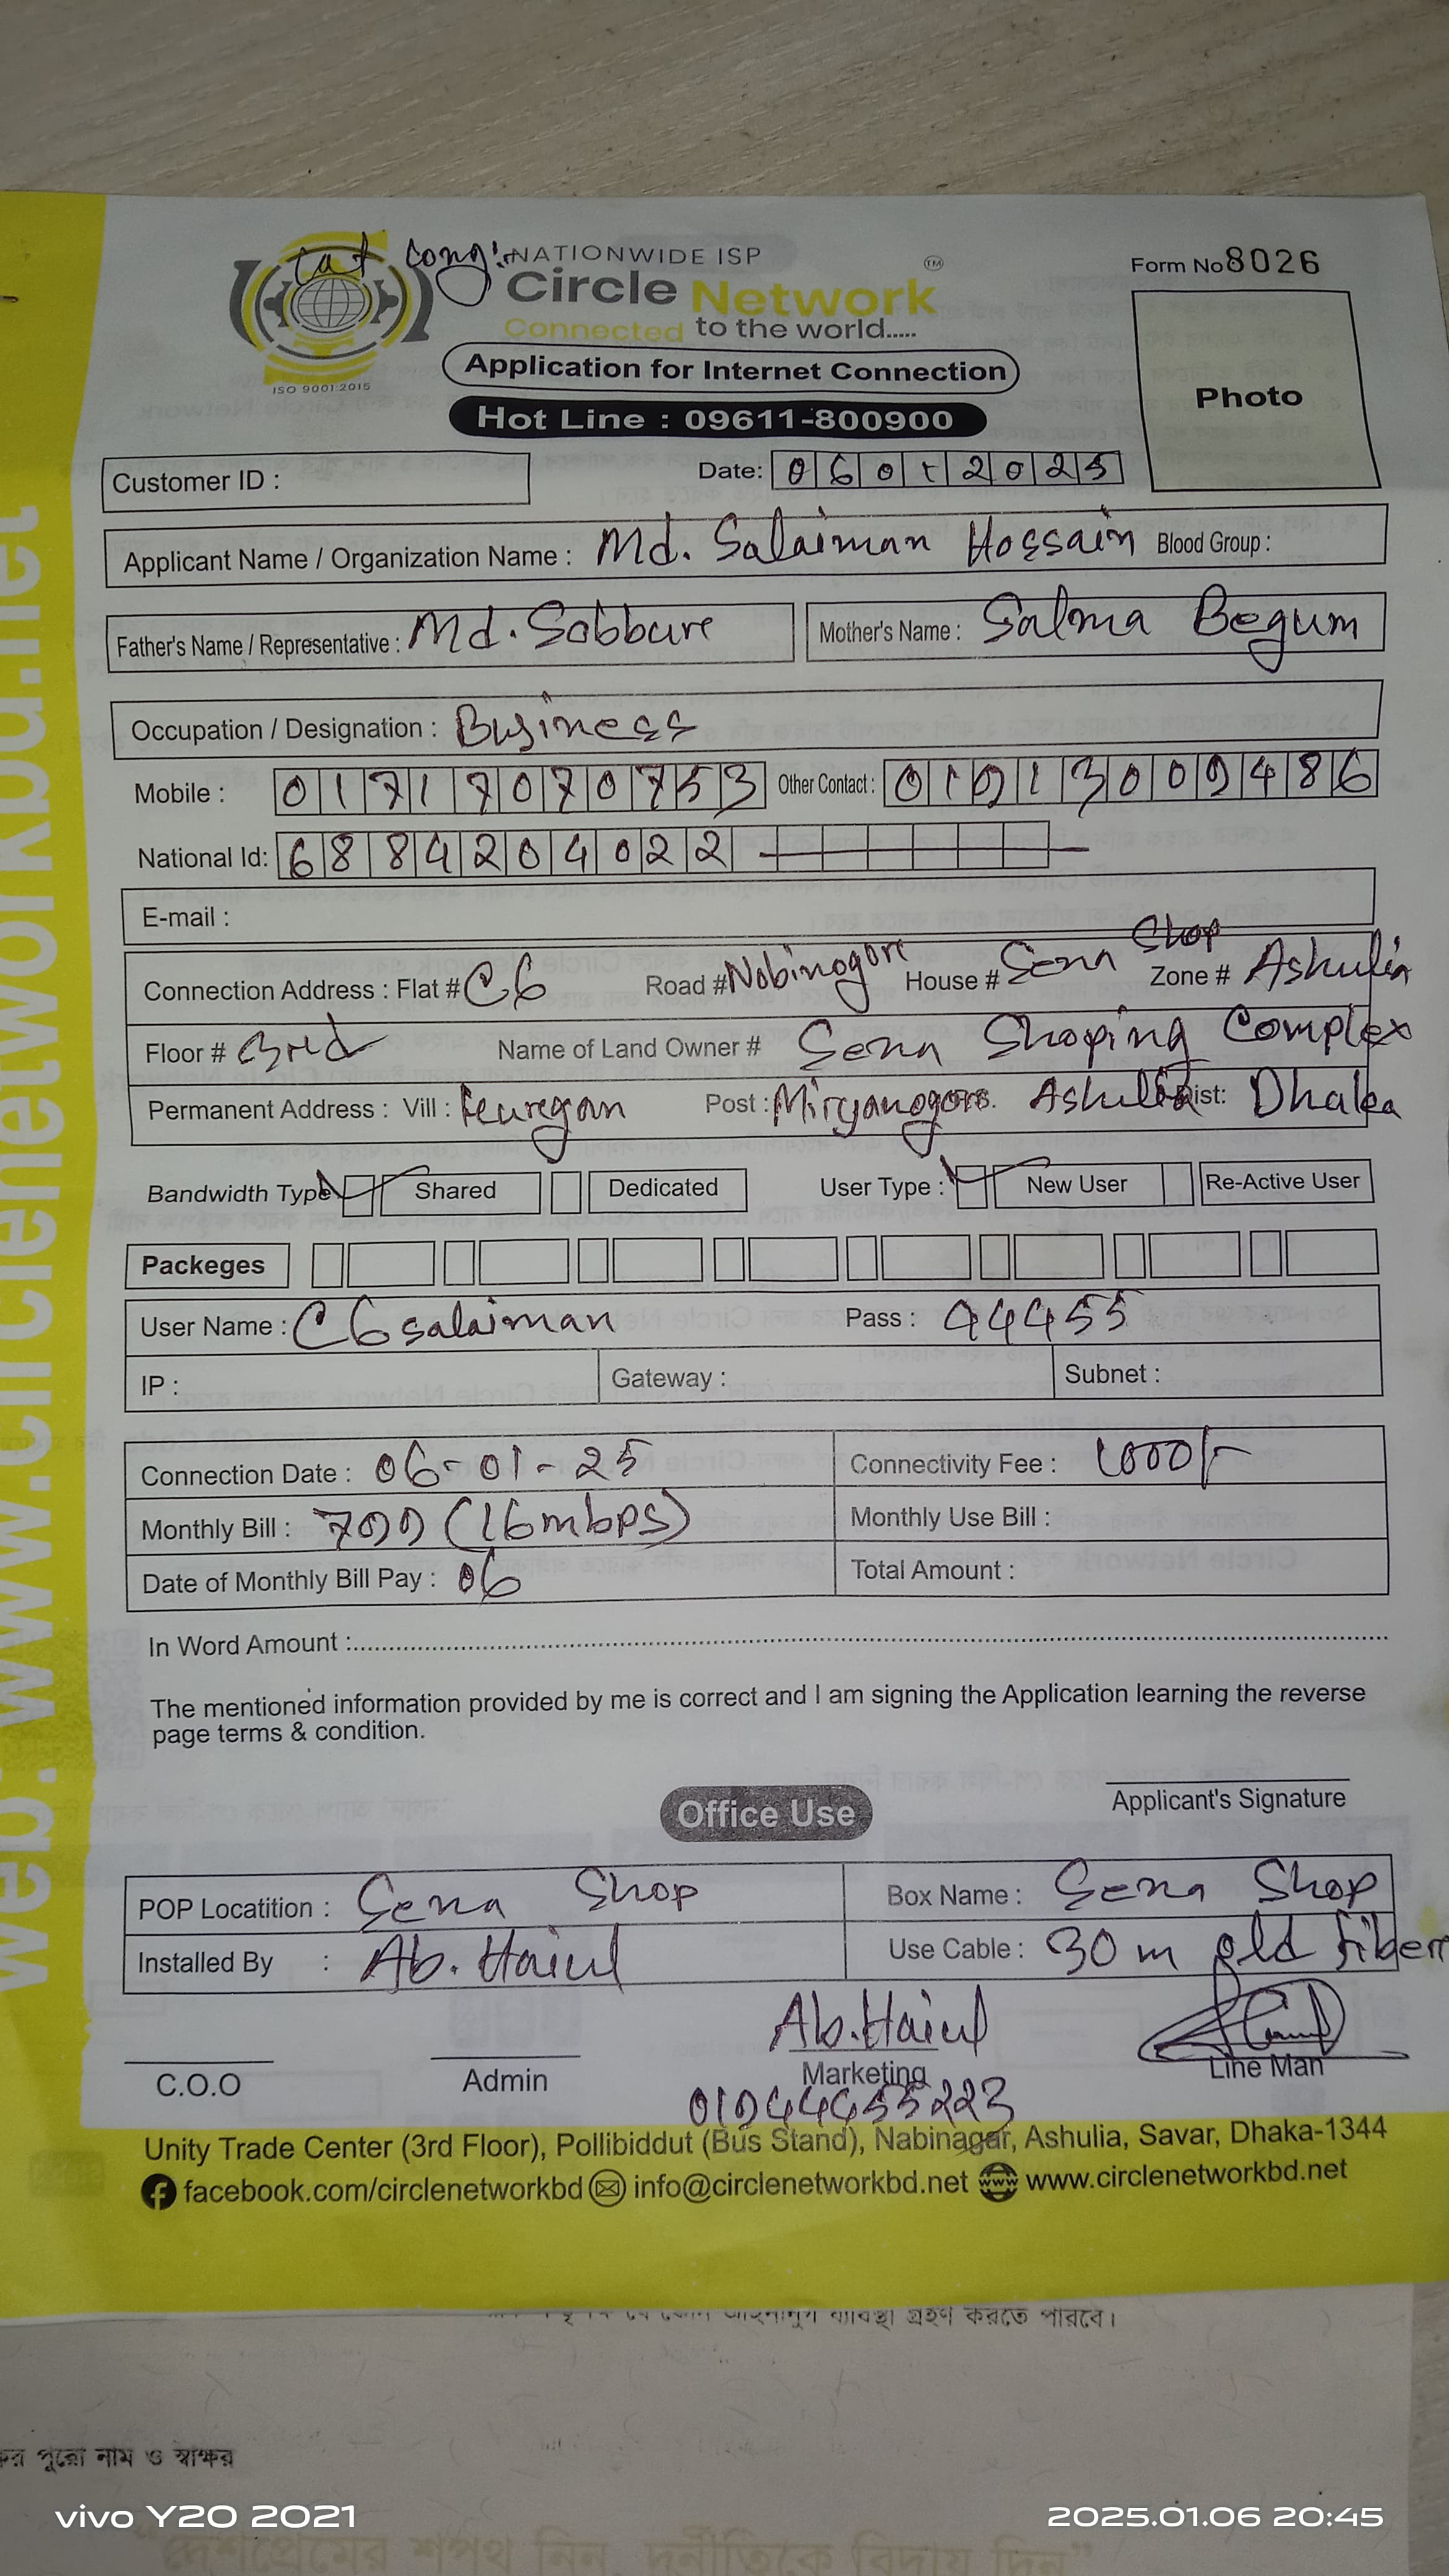 web: www.circlenetworkbd.net
cat
NATIONWIDE ISP
Circle Network TM
Connected to the world.....
ISO 9001:2015
Form No 8026
Photo
Application for Internet Connection
Hot Line : 09611-800900
Customer ID :
Date: 06012025
Applicant Name / Organization Name : Md. Salaiman Hossain Blood Group :
Father's Name / Representative : Md. Sabbure Mother's Name : Salma Begum
Occupation / Designation : Business
Mobile : 01717070753 Other Contact : 01913009486
National Id: 6884204022
E-mail :
Connection Address : Flat # C6 Road # Nobinogore House # Sena Shop Zone # Ashulia
Floor # 3rd Name of Land Owner # Sena Shoping Complex
Permanent Address : Vill : Post : P.S. Ashulia Dist: Dhaka
Bandwidth Type Shared Dedicated User Type : New User Re-Active User
Packeges
User Name : C6salaiman Pass : 44455
IP : Gateway : Subnet :
Connection Date : 06-01-25 Connectivity Fee : 1000/-
Monthly Bill : 700 (16mbps) Monthly Use Bill :
Date of Monthly Bill Pay : 06 Total Amount :
In Word Amount :
The mentioned information provided by me is correct and I am signing the Application learning the reverse
page terms & condition.
Applicant's Signature
Office Use
POP Locatition : Sena Shop Box Name : Sena Shop
Installed By : Ab. Haiul Use Cable : 30 m old fiber
Ab. Haiul
C.O.O Admin Marketing Line Man
01944455223
Unity Trade Center (3rd Floor), Pollibiddut (Bus Stand), Nabinagar, Ashulia, Savar, Dhaka-1344
facebook.com/circlenetworkbd info@circlenetworkbd.net www www.circlenetworkbd.net
ব্যবস্থা গ্রহণ করতে পারবে।
পুরো নাম ও স্বাক্ষর
vivo Y20 2021
2025.01.06 20:45
"দেশপ্রেমের শপথ নিন, দুর্নীতিকে বিদায় দিন"